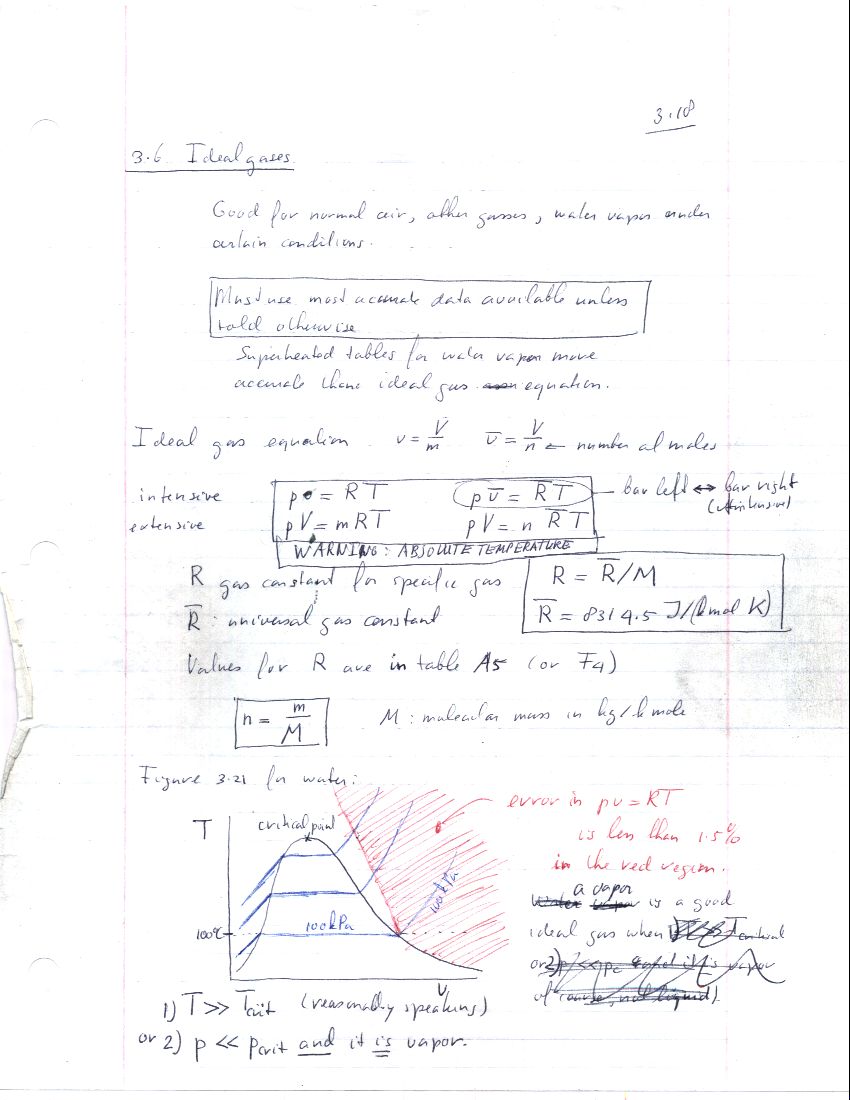 3.18
3.6 Ideal gases
Good for normal air, other gasses, water vapor under
certain conditions.
Must use most accurate data available unless
told otherwise
Superheated tables for water vapor more
accurate than ideal gas equation.
Ideal gas equation v = V/m v̅ = V/n ← number of moles
intensive pv = RT pv̅ = R̅T bar left ↔ bar right
(intensive)
extensive pV = mRT pV = n R̅T
WARNING: ABSOLUTE TEMPERATURE
R gas constant for specific gas R = R̅/M
R̅ : universal gas constant R̅ = 8314.5 J/(kmol K)
Values for R are in table A5 (or F4)
n = m/M M : molecular mass in kg/kmole
Figure 3.21 for water:
error in pv = RT
is less than 1.5%
in the red region.
T
critical point
100kPa
100°C
100kPa
v
a vapor
is a good
ideal gas when
1) T >> Tcrit (reasonably speaking)
or 2) p << pcrit and it is vapor.